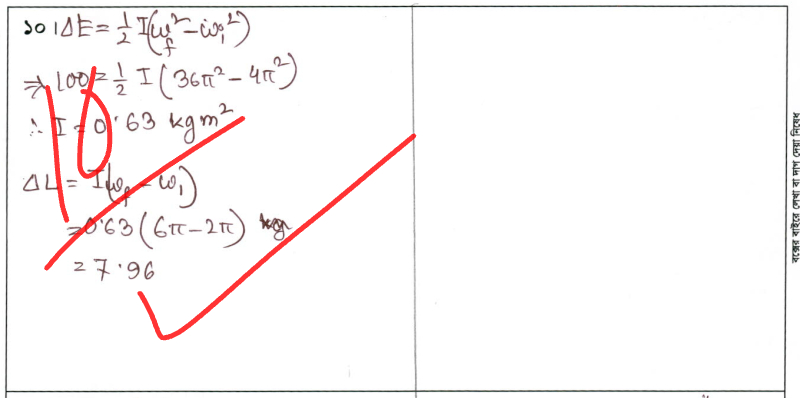 ১০। ΔE = 1/2 I(ω_f² - ω_i²)
⇒ 100 = 1/2 I (36π² - 4π²)
∴ I = 0.63 kgm²
ΔL = I(ω_f - ω_i)
= 0.63 (6π - 2π) kg
= 7.96
10
বক্সের বাইরে লেখা বা দাগ দেয়া নিষেধ